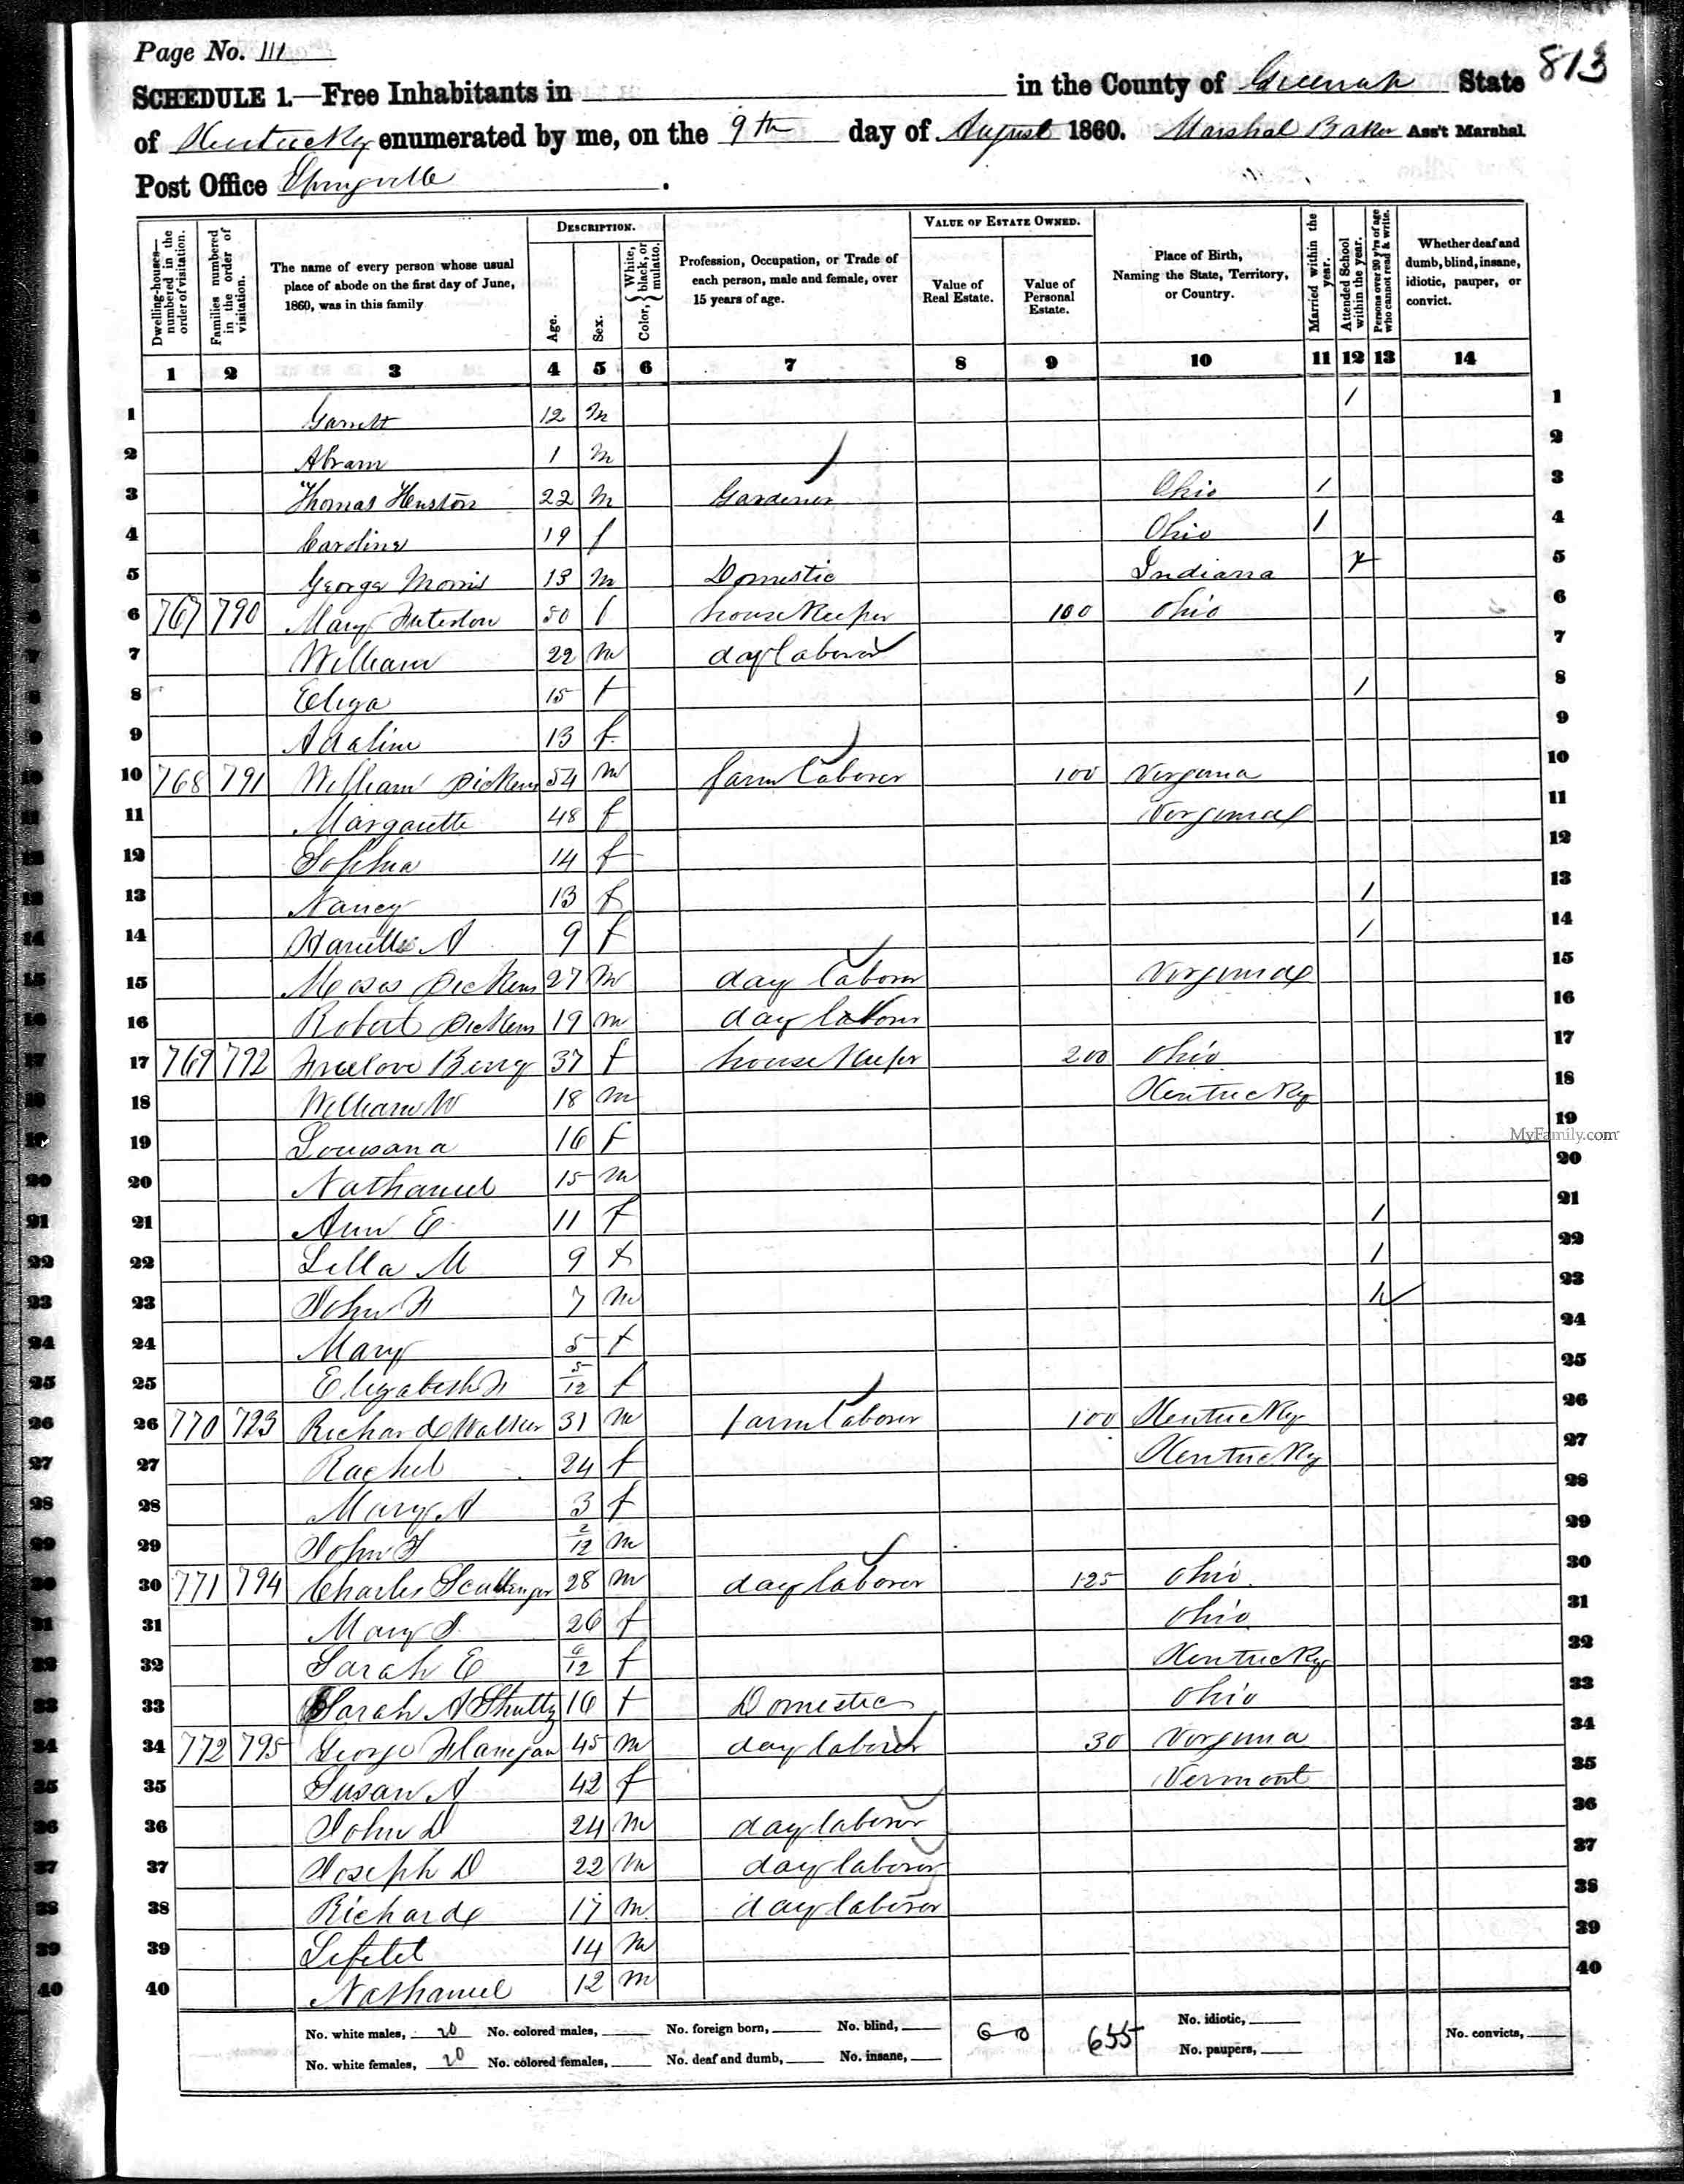 Page No. 111
813
SCHEDULE 1.—Free Inhabitants in in the County of Greenup State
of Kentucky enumerated by me, on the 9th day of August 1860. Marshal Baker Ass't Marshal
Post Office Springville .
Dwelling-houses—numbered in the order of visitation.
Families numbered in the order of visitation.
The name of every person whose usual place of abode on the first day of June, 1860, was in this family
DESCRIPTION.
Age.
Sex.
Color, } White, black, or mulatto.
Profession, Occupation, or Trade of each person, male and female, over 15 years of age.
VALUE OF ESTATE OWNED.
Value of Real Estate.
Value of Personal Estate.
Place of Birth, Naming the State, Territory, or Country.
Married within the year.
Attended School within the year.
Persons over 20 y'rs of age who cannot read & write.
Whether deaf and dumb, blind, insane, idiotic, pauper, or convict.
1 2 3 4 5 6 7 8 9 10 11 12 13 14
1 Garrett 12 m / 1
2 Abram 1 m 2
3 Thomas Henston 22 m Gardener Ohio / 3
4 Caroline 19 f Ohio / 4
5 George Morris 13 m Domestic Indiana 5
6 767 790 Mary 50 f house Keeper 100 Ohio 6
7 William 22 m day laborer 7
8 Eliza 15 f / 8
9 Adaline 13 f 9
10 768 791 William Dickens 54 m farm Laborer 100 Virginia 10
11 Margarette 48 f Virginia 11
12 Sophia 14 f 12
13 Nancy 13 f / 13
14 A 9 f / 14
15 Moses Dickens 27 m day laborer Virginia 15
16 Robert Dickens 19 m day laborer 16
17 769 792 Freelove Berry 37 f house Keeper 200 Ohio 17
18 William W 18 m Kentucky 18
19 Louisana 16 f 19
MyFamily.com
20 Nathaniel 15 m 20
21 Ann E 11 f / 21
22 Lella M 9 f / 22
23 John F 7 m / 23
24 Mary 5 f 24
25 Elizabeth F 5/12 f 25
26 770 723 Richard Walker 31 m farm Laborer 100 Kentucky 26
27 Rachel 24 f Kentucky 27
28 Mary A 3 f 28
29 John F 2/12 m 29
30 771 794 Charles 28 m day laborer 125 Ohio 30
31 Mary 26 f Ohio 31
32 Sarah E f Kentucky 32
33 Sarah A Shultz 16 f Domestic Ohio 33
34 772 795 George Flanegan 45 m day laborer 30 Virginia 34
35 Susan A 42 f Vermont 35
36 John D 24 m day laborer 36
37 Joseph D 22 m day laborer 37
38 Richard 17 m day laborer 38
39 14 m 39
40 Nathaniel 12 m 40
No. white males, 20 No. colored males, No. foreign born, No. blind, 655 No. idiotic, No. convicts,
No. white females, 20 No. colored females, No. deaf and dumb, No. insane, No. paupers,